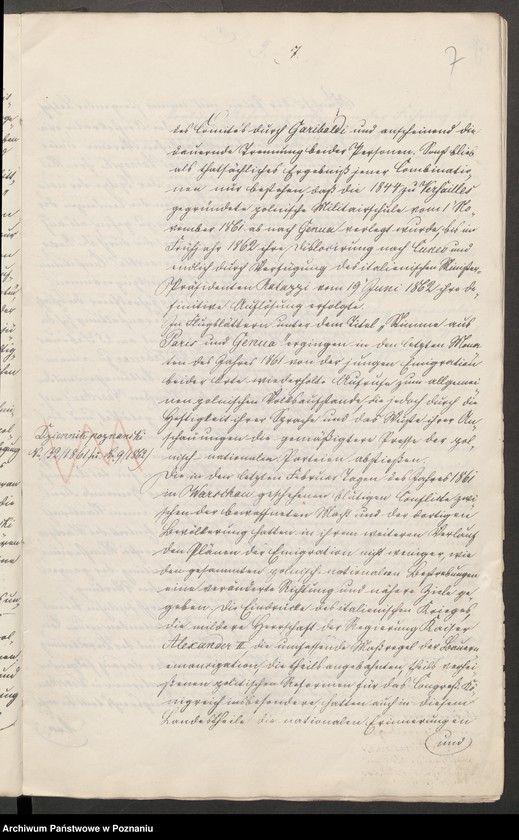 7
7
des Comités durch Garibaldi und anscheinend die
dauernde Trennung beider Personen. Sonst blieb
als thatsächliches Ergebniß jener Combinatio,
nen nur bestehen, daß die 1844 zu Versailles
gegründete polnische Militairschule vom 1 No,
vember 1861 ab nach Genua verlegt wurde, bis im
Frühjahr 1862 ihre Dislocirung nach Cuneo und
endlich durch Verfügung des italienischen Minister,
Präsidenten Ratazzi vom 19 Juni 1862 ihre de,
finitive Auflösung erfolgte.
In Flugblättern unter dem Titel „Stimme aus
Paris und Genua" ergingen in den letzten Mona,
ten des Jahres 1861 von der jungen Emigration
beider Orte wiederholte Aufrufe zum allgemei
nen polnischen Volksaufstande, die jedoch durch die
Heftigkeit ihrer Sprache und das Wüste ihrer An,
schauungen die gemäßigtere Presse der pol,
nisch-nationalen Parteien abstießen.
Dziennik poznański
N. 192/1861 u. N. 9/1862
Die in den letzten Februar Tagen des Jahres 1861
in Warschau geschehenen blutigen Conflikte zwi,
schen der bewaffneten Macht und der dortigen
Bevölkerung hatten in ihrem weiteren Verlauf
den Plänen der Emigration nicht weniger, wie
den gesammten polnisch-nationalen Bestrebungen
eine veränderte Richtung und nähere Ziele ge,
geben. Die Eindrücke des italienischen Krieges,
die mildere Herrschaft der Regierung Kaiser
Alexander II, die umfassende Maßregel der Bauern
emancipation, die theils angebahnten, theils verhei
ßenen politischen Reformen für das Congreß-Kö,
nigreich insbesondere hatten auch in diesem
Landestheile die nationalen Erinnerungen
und
Archiwum Państwowe w Poznaniu